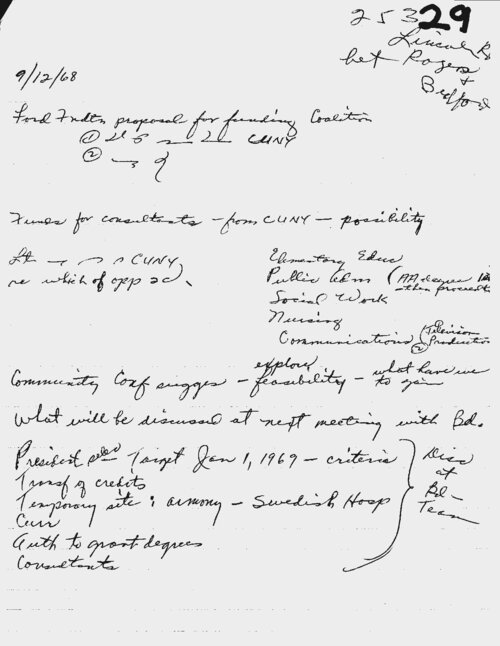 25329
Lincoln Rd
bet Rogers
+
Bedford
9/12/68
Ford Fndtn proposal for funding Coalition
① CUNY
②
Funds for consultants - from CUNY - possibility
CUNY
re which of opp
Elementary Educ
Public Adm (AA degree
Social Work
Nursing
Communications ② Television Production
explore
Community Conf sugges - feasibility - what have we to gain
What will be discussed at next meeting with Bd.
President Target Jan 1, 1969 - criteria
Transf of credits
Temporary site: armory - Swedish Hosp
Curr
Auth to grant degrees
Consultants
Disc
at
Bd-
Team